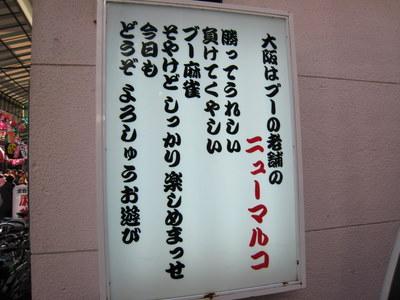 大阪はブーの老舗の
ニューマルコ
勝ってうれしい
負けてくやしい
ブー麻雀
そやけど しっかり 楽しめまっせ
今日も
どうぞ よろしゅうお遊び